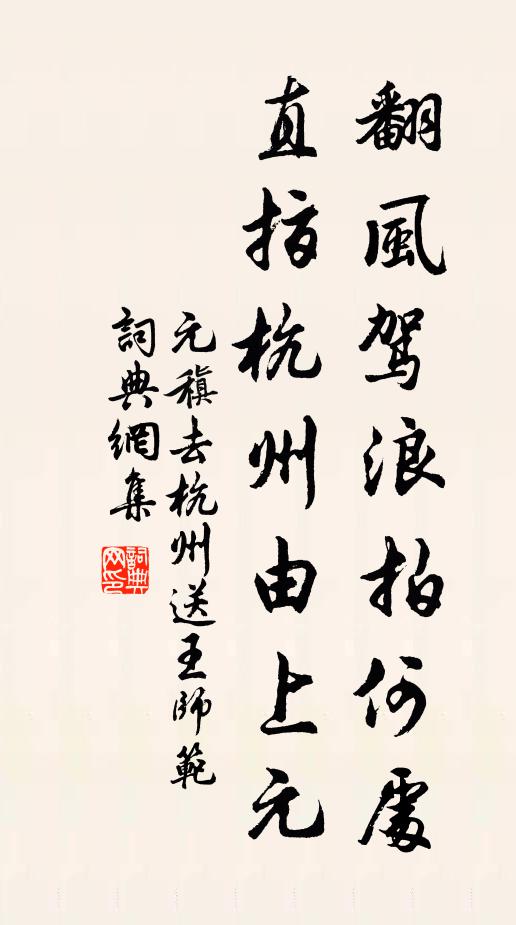 翻風駕浪拍何處
直指杭州由上元
元稹去杭州送王師範
詞典網集
詞典網印